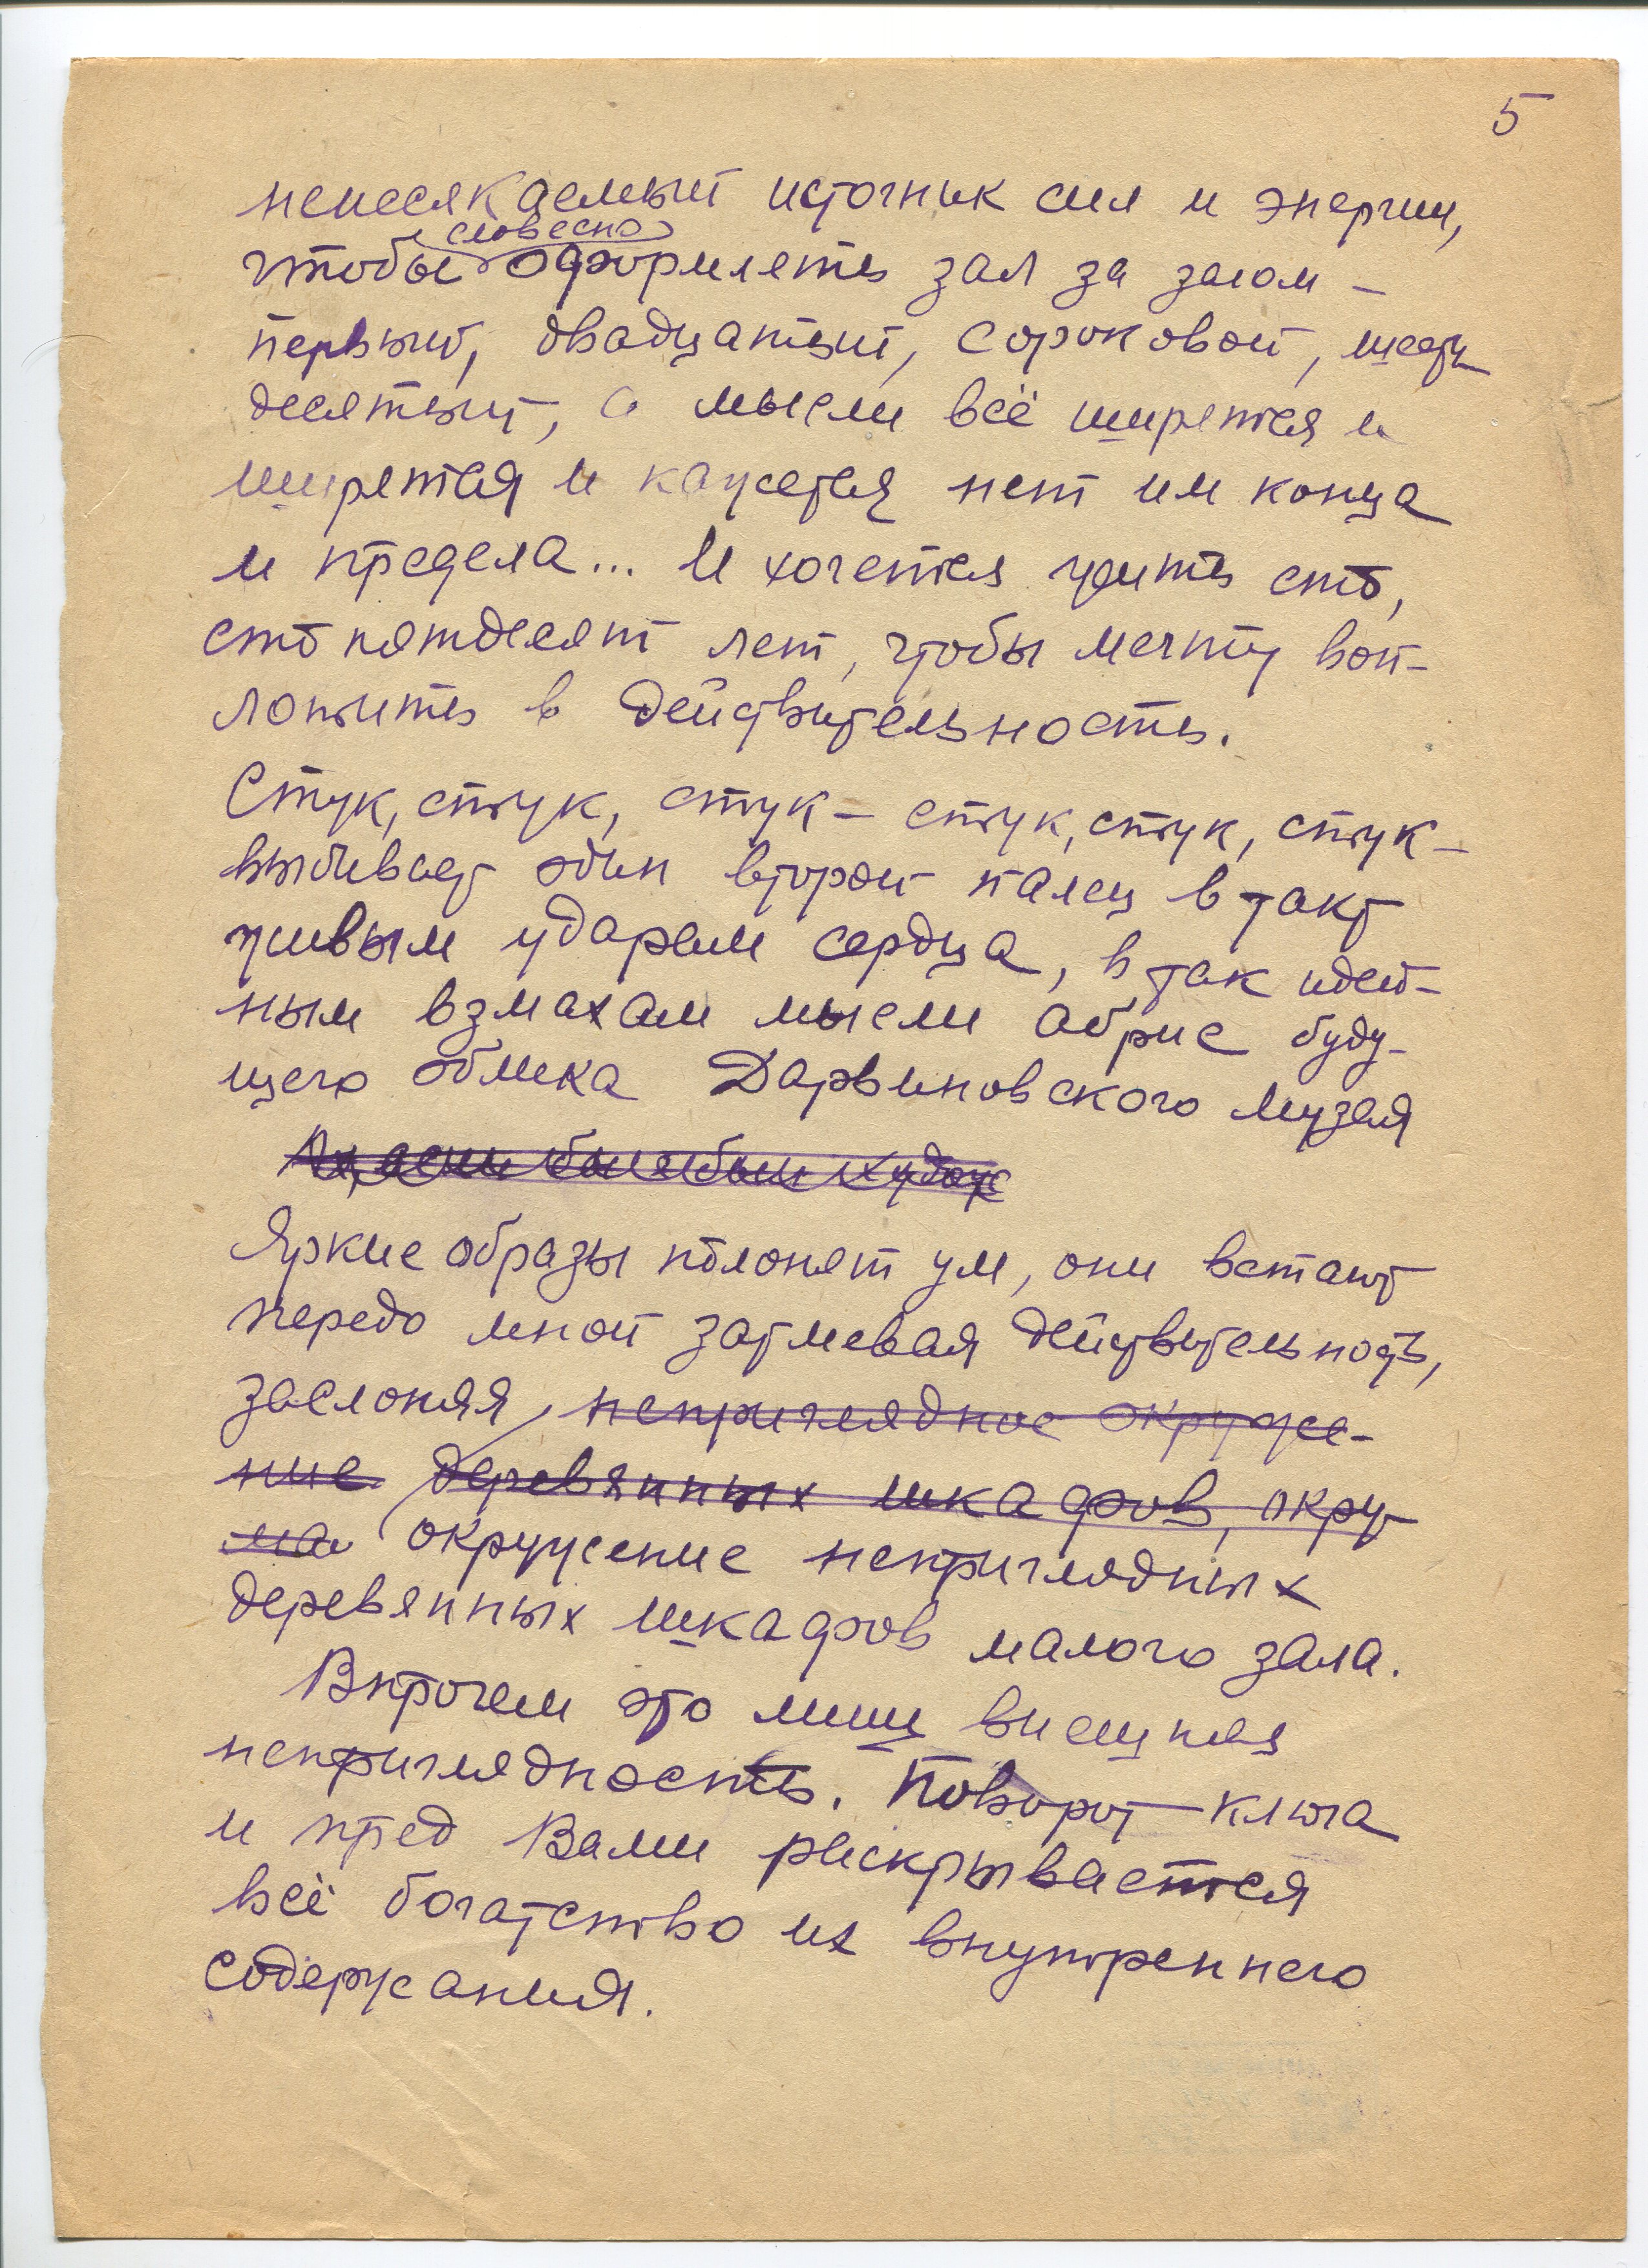 5
неиссякаемый источник сил и энергии,
словесно
чтобы оформлять зал за залом –
первый, двадцатый, сороковой, шести
десятый, а мысли всё ширятся и
ширятся и кажется нет им конца
и предела... И хочется жить сто,
сто пятдесят лет, чтобы мечту воп-
лотить в действительность.
Стук, стук, стук – стук, стук, стук –
выбивает один второй палец в такт
живым ударам сердца, в так идей-
ным взмахам мысли абрис буду-
щего облика Дарвиновского музея
Ах, если бы я был худож
Яркие образы полонят ум, они встают
передо мной затмевая действительность,
заслоняя неприглядное окруже-
ние деревянных шкафов, окру
ма окружение неприглядных
деревянных шкафов малого зала.
Впрочем это лишь внешняя
неприглядность. Поворот ключа
и пред Вами раскрывается
всё богатство их внутреннего
содержания.